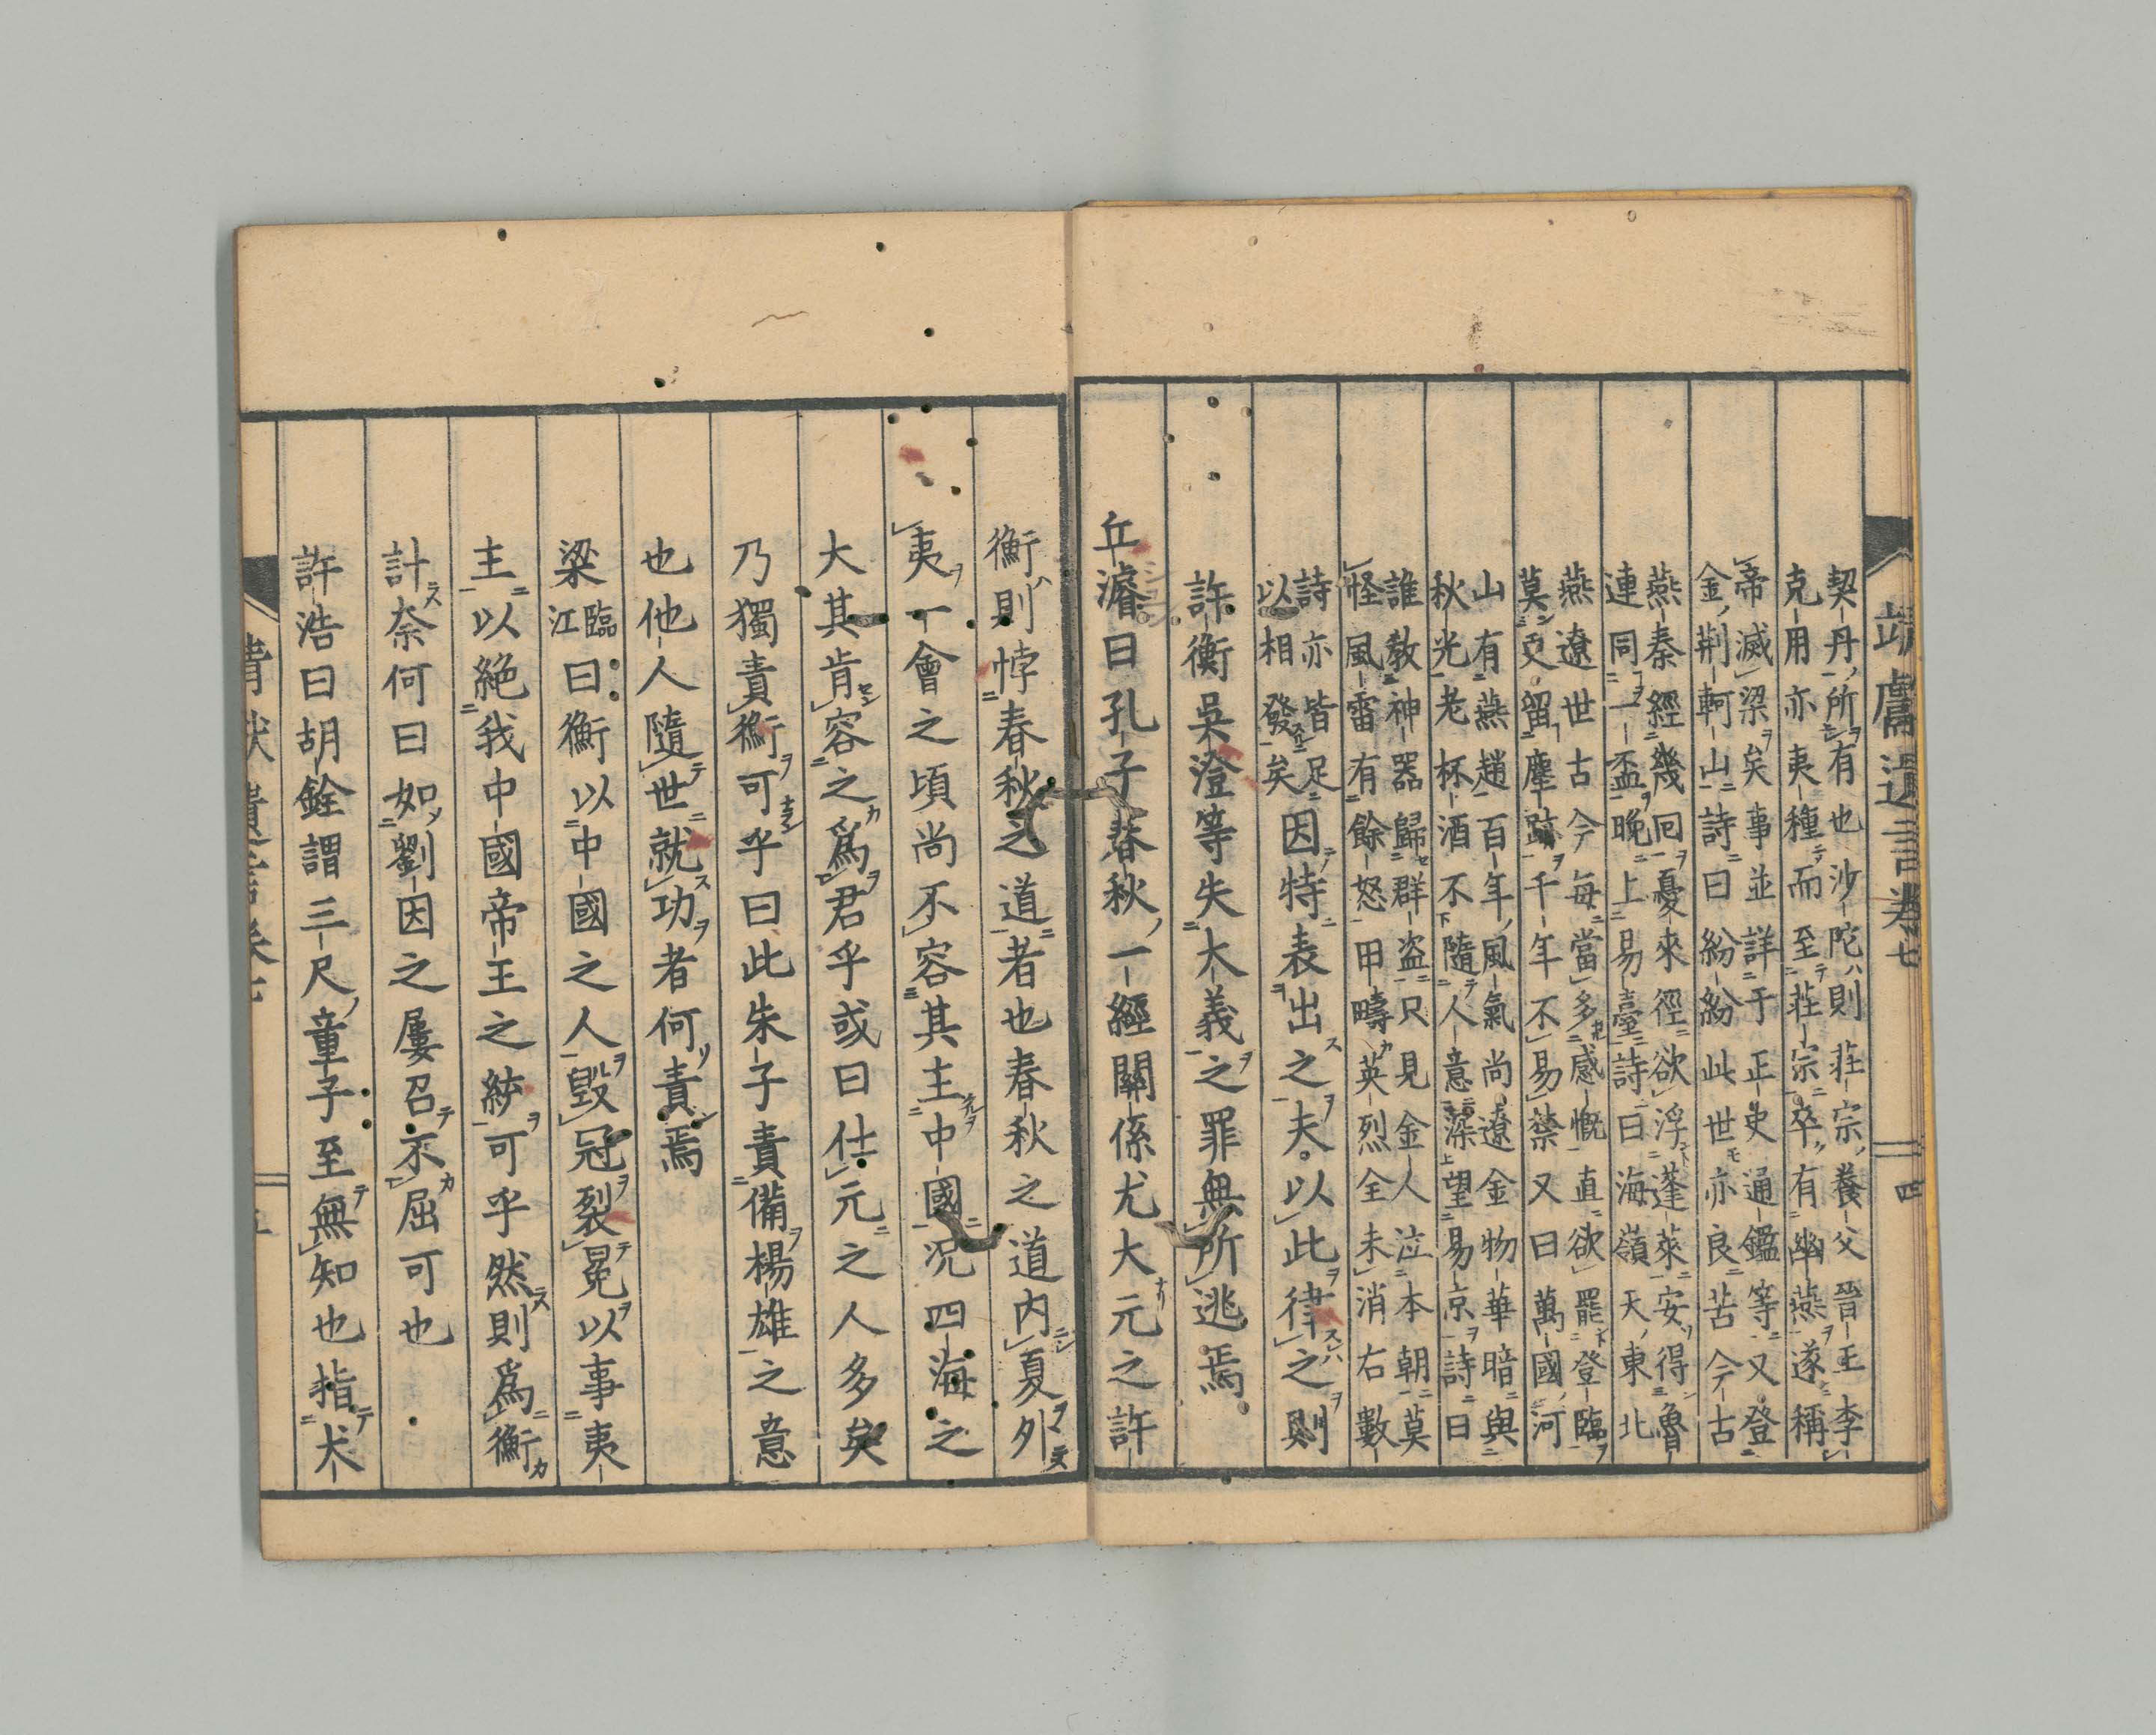 靖獻遺言卷七 四
契丹所有也沙陀則莊宗養父晉王李
克用亦夷種而至莊宗卒有幽燕遂稱
帝滅梁矣事並詳于正史通鑑等又登
金荆軻山詩曰紛紛此世亦良苦今古
燕秦經幾囘憂來徑欲浮蓬萊安得魯
連同一盃晚上易臺詩曰海嶺天東北
燕遼世古今每當多感慨直欲罷登臨
莫更留塵跡千年不易禁又曰萬國河
山有燕趙百年風氣尚遼金物華暗與
秋光老杯酒不隨人意深望易京詩曰
誰敎神器歸群盗只見金人泣本朝莫
怪風雷有餘怒田疇英烈全未消右數
詩亦皆足
以相發矣因特表出之夫以此律之則
許衡吳澄等失大義之罪無所逃焉
丘濬曰孔子春秋一經關係尤大元之許
衡則悖春秋之道者也春秋之道內夏外
夷一會之頃尚不容其主中國況四海之
大其肯容之爲君乎或曰仕元之人多矣
乃獨責衡可乎曰此朱子責備楊雄之意
也他人隨世就功者何責焉
梁臨江曰衡以中國之人毀冠裂冕以事夷
主以絕我中國帝王之統可乎然則爲衡
計奈何曰如劉因之屢召不屈可也
許浩曰胡銓謂三尺童子至無知也指犬